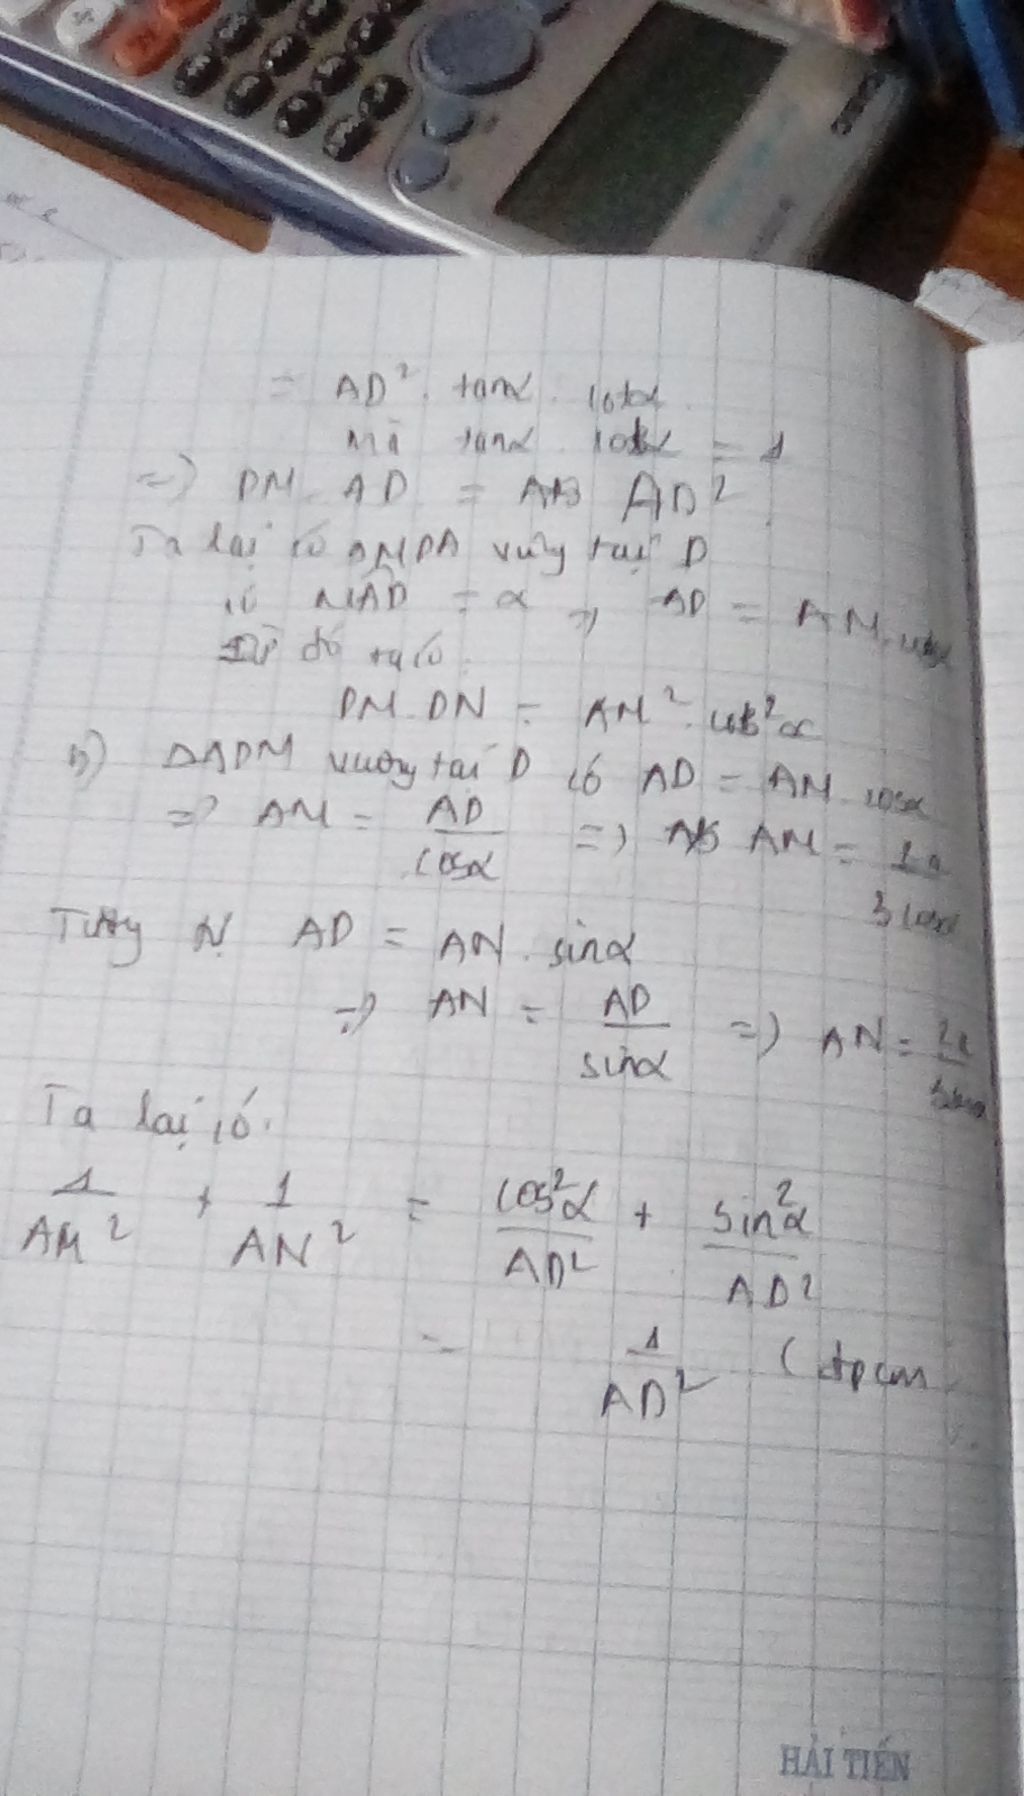 = AD². tanα. cotα
Mà tanα. cotα = 1
=> DM. AD = AD²
Ta lại có ΔMDA vuông tại D
có MAD = α => AD = AM. cosα
Từ đó ta có
DM. DN = AM². cos²α
b) ΔADM vuông tại D có AD = AM. cosα
=> AM = AD/cosα => AM =
Tương tự AD = AN. sinα
=> AN = AD/sinα => AN =
Ta lại có.
1/AM² + 1/AN² = cos²α/AD² + sin²α/AD²
= 1/AD² (đpcm
HẢI TIẾN